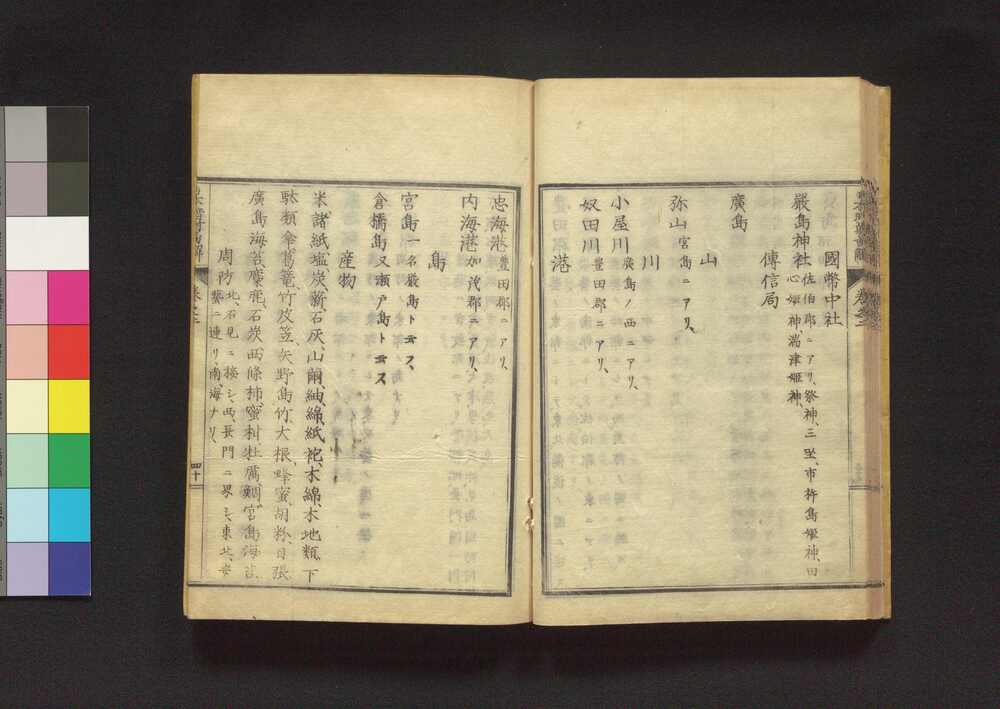 國幣中社
嚴島神社 佐伯郡ニアリ、祭神、三坐、市杵島姫神、田
心姫神、湍津姫神、
傳信局
廣島
山
弥山 宮島ニアリ、
川
小屋川 廣島ノ西ニアリ、
奴田川 豊田郡ニアリ、
港
忠海港 豊田郡ニアリ、
内海港 加茂郡ニアリ、
島
宮島 一名嚴島ト云フ、
倉橋島 又瀬戸島ト云フ
産物
米、諸紙、塩、炭、薪、石灰、山繭、紬、綿、紙、袍、木綿、木地類、下
駄類、傘、葛篭、竹皮笠、矢野島竹、大根、蜂蜜、胡粉、日張
廣島海苔、石炭、西條柿、蜜柑、牡蠣、鯛、宮島海苔、
周防 北、石見ニ接シ、西、長門ニ界シ、東北、安
藝ニ連リ、南、海ナリ、
四十